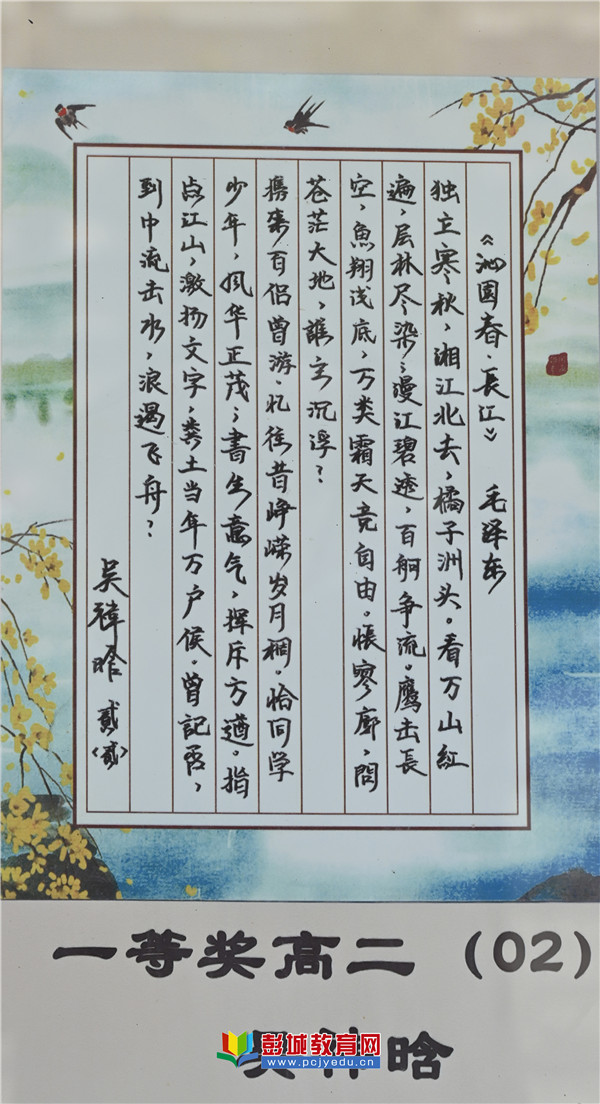 《沁园春·長江》 毛泽东
独立寒秋，湘江北去，橘子洲头。看万山紅
遍，层林尽染；漫江碧透，百舸争流。鹰击長
空，魚翔浅底，万类霜天竞自由。怅寥廓，問
苍茫大地，誰主沉浮？
携来百侣曾游，忆往昔峥嵘岁月稠。恰同学
少年，風华正茂；書生意气，挥斥方遒。指
点江山，激扬文字，粪土当年万户侯。曾記否，
到中流击水，浪遏飞舟？
吴晗 贰〈贰〉
一等奖高二（02）
晗
彭城教育网
www.pcjyedu.cn